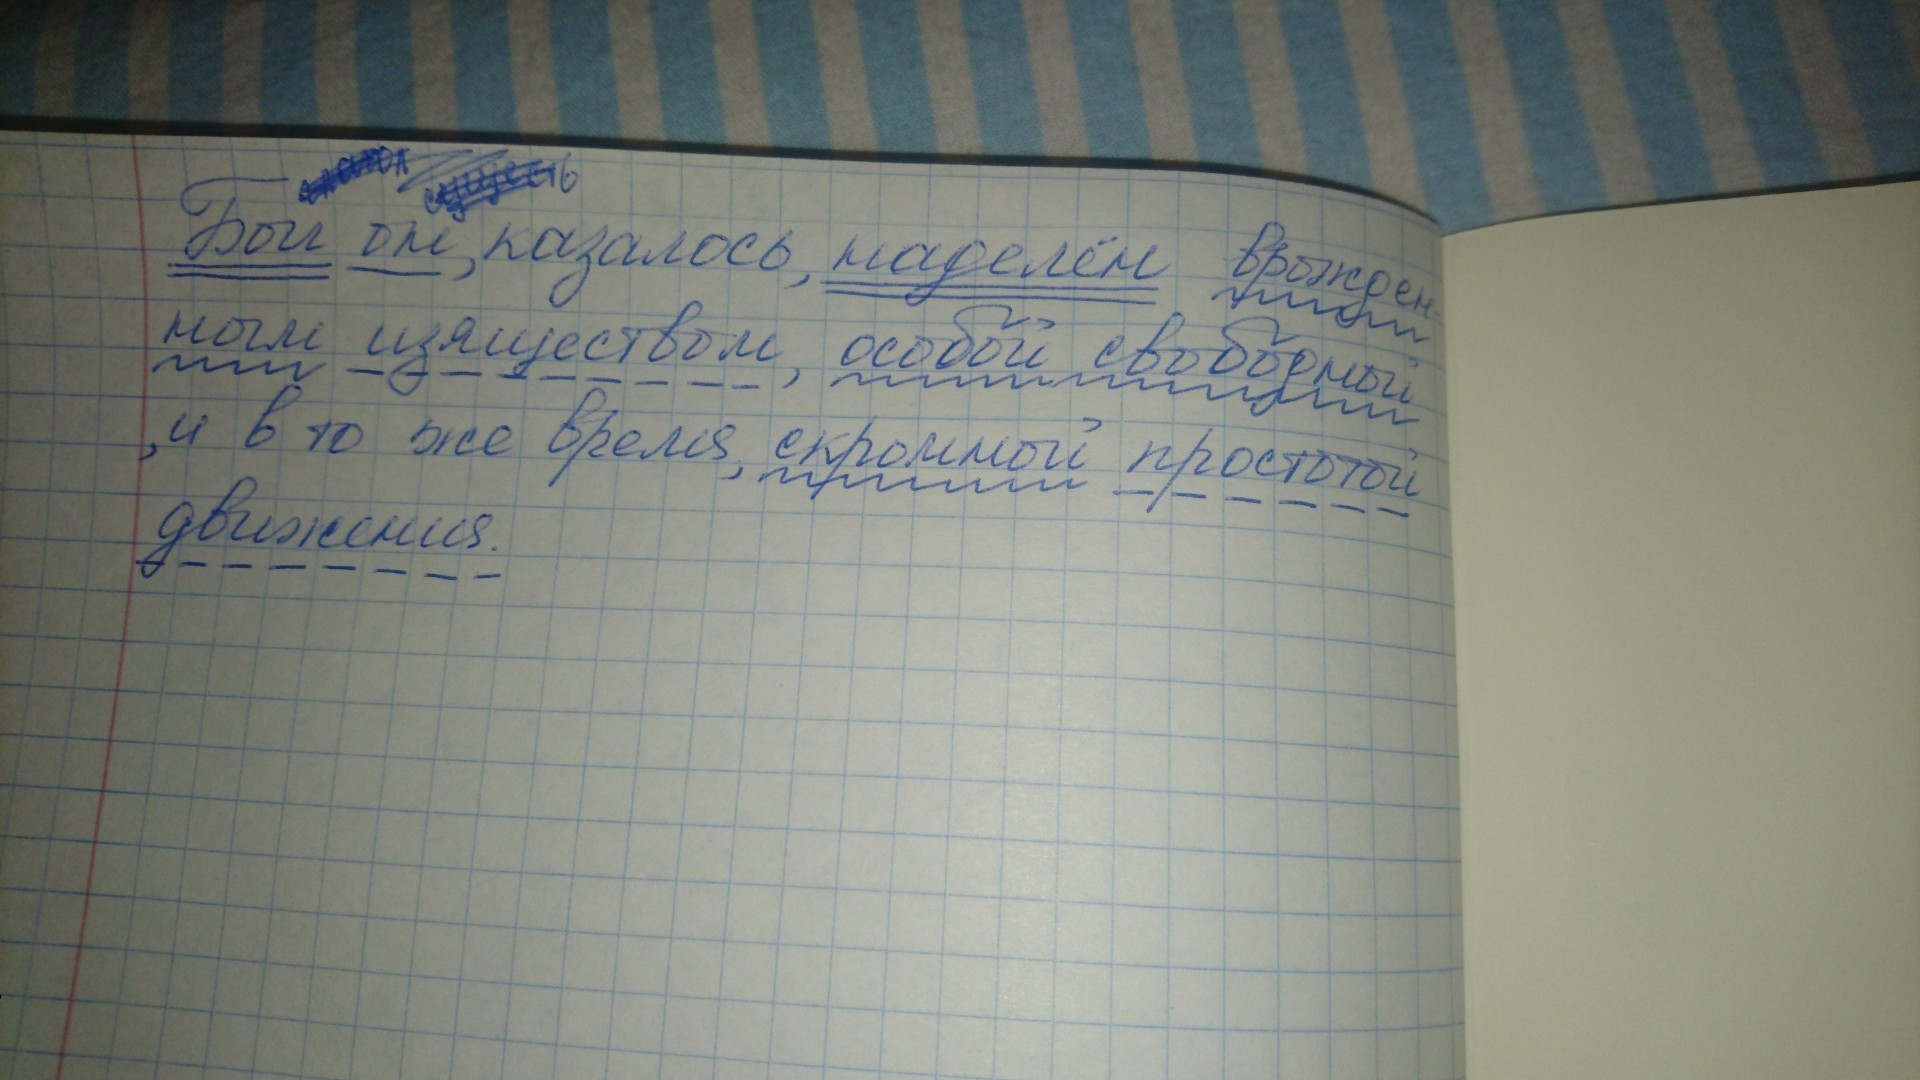 Был он, казалось, наделён врожден-
ным изяществом, особой свободной
, и в то же время, скромной простотой
движения.